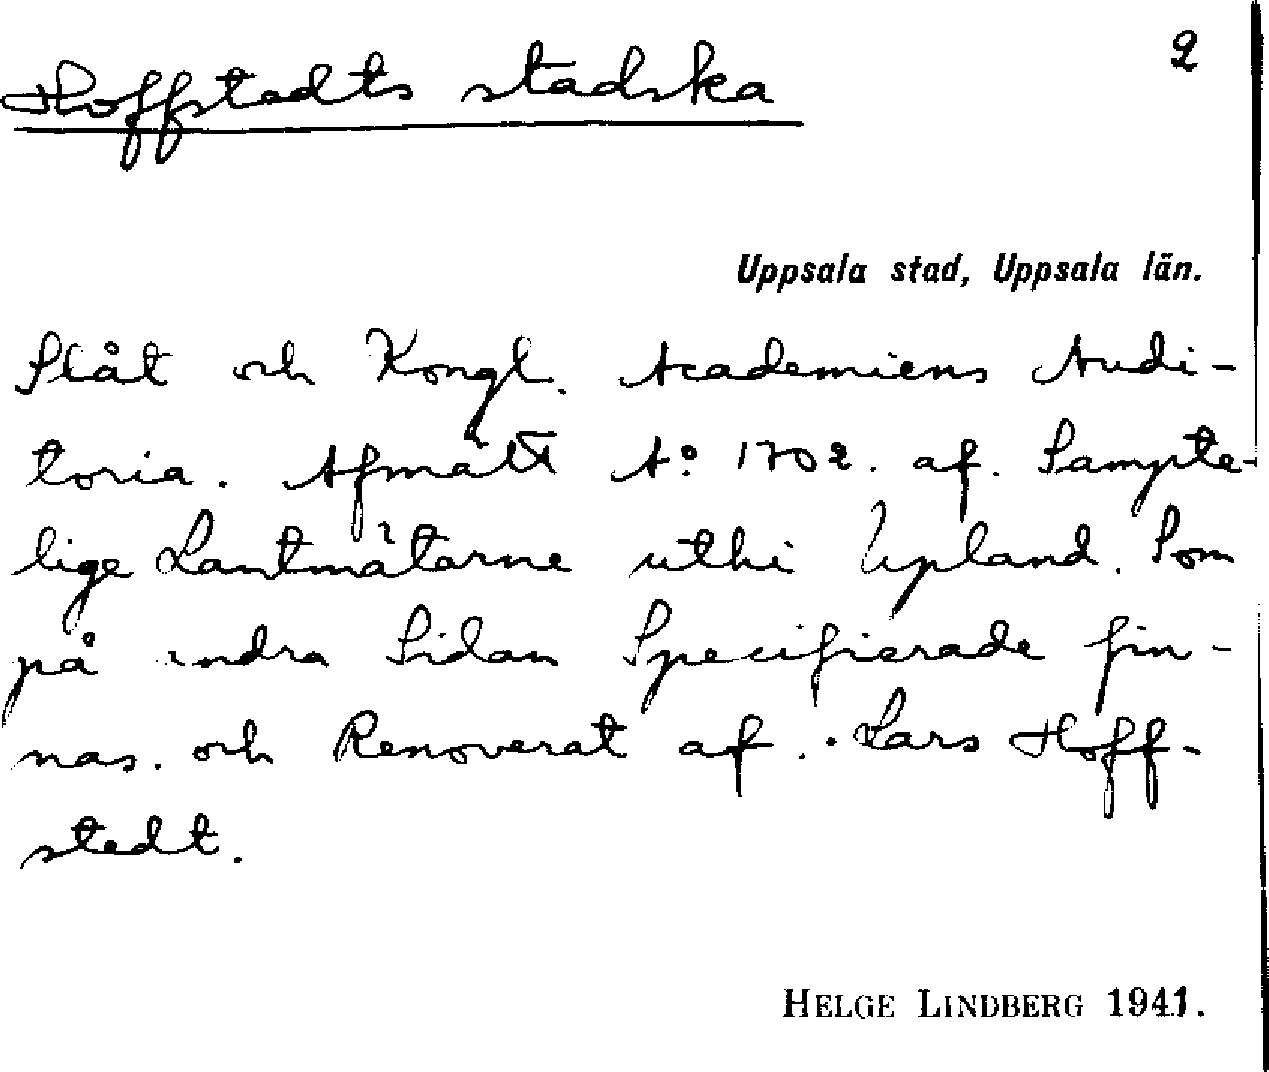 Hoffstedts stadska
2
Uppsala stad, Uppsala län.
Slåt och Kongl. Academiens Audi-
toria. Afmätt Aº 1702. af. Sampte-
lige Lantmätarne uthi Upland. Som
på andra Sidan Specifierade fin-
nas. och Renoverat af. Lars Hoff-
stedt.
HELGE LINDBERG 1941.